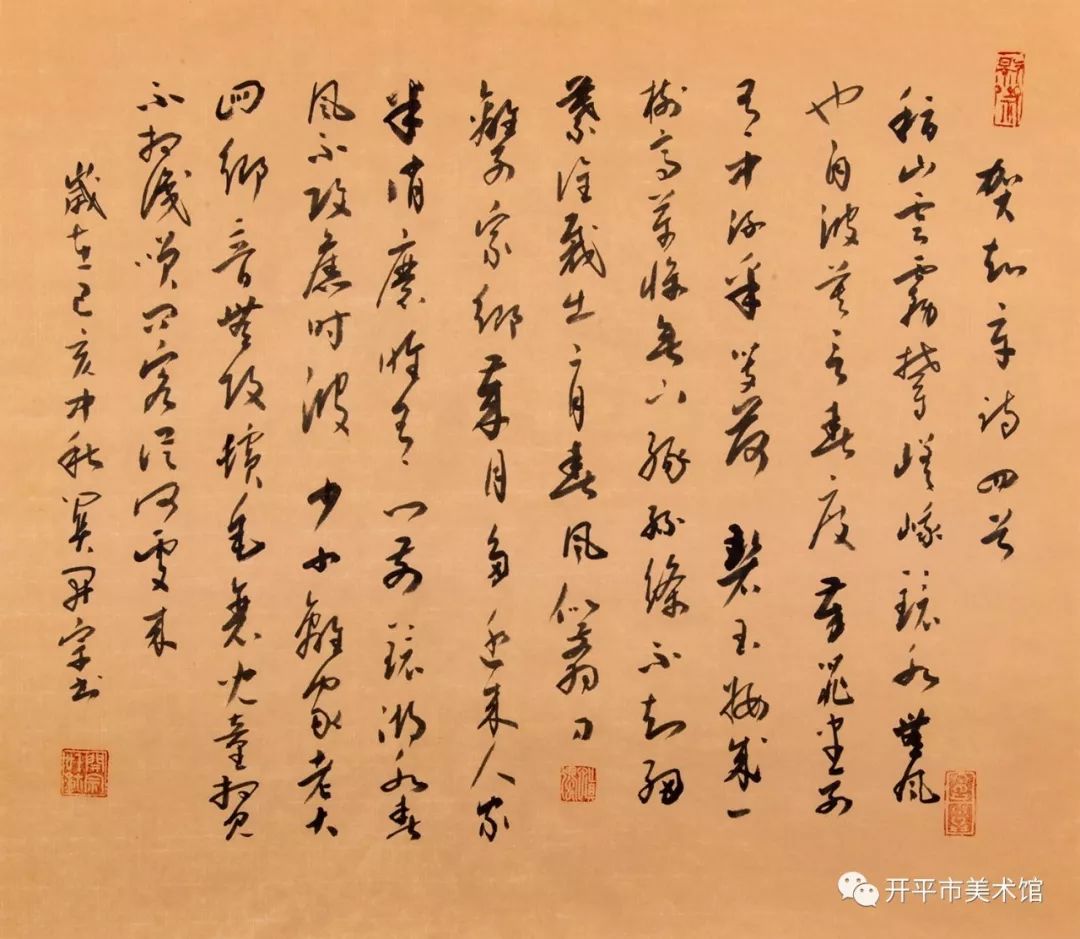 賀知章詩四首
稽山雲霧鬱嵯峨鏡水無風
也自波莫言春度芳菲盡別
有中流采芰荷 碧玉妝成一
樹高萬條垂下綠絲絛不知細
葉誰裁出二月春風似剪刀
離別家鄉歲月多近來人事
半消磨唯有門前鏡湖水春
風不改舊時波 少小離家老大
回鄉音無改鬢毛衰兒童相見
不相識笑問客從何處來
歲在己亥中秋開宗書
開平市美术馆